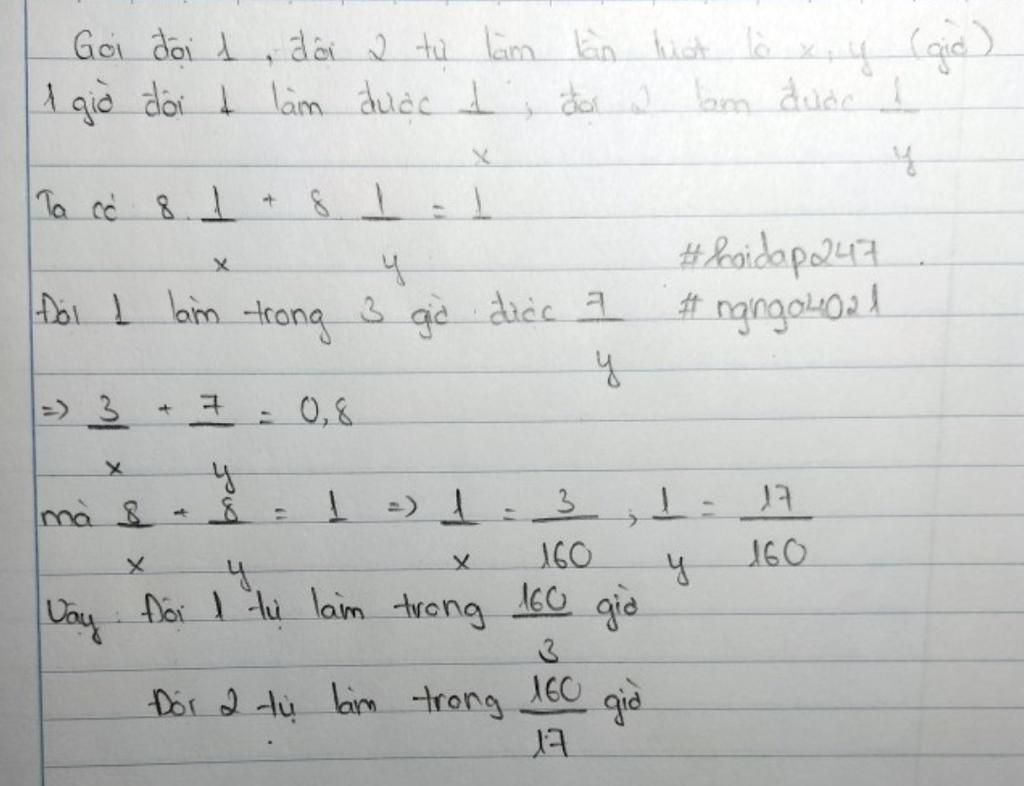 Gọi đội 1, đội 2 tự làm lần lượt là x, y (giờ)
1 giờ đội 1 làm được 1/x, đội 2 làm được 1/y
Ta có 8 1/x + 8 1/y = 1
#hoidap247
Đội 1 làm trong 3 giờ được 7/y
#ngngo4021
=> 3/x + 7/y = 0,8
mà 8/x + 8/y = 1 => 1/x = 3/160 ; 1/y = 17/160
Vậy: Đội 1 tự làm trong 160/3 giờ
Đội 2 tự làm trong 160/17 giờ